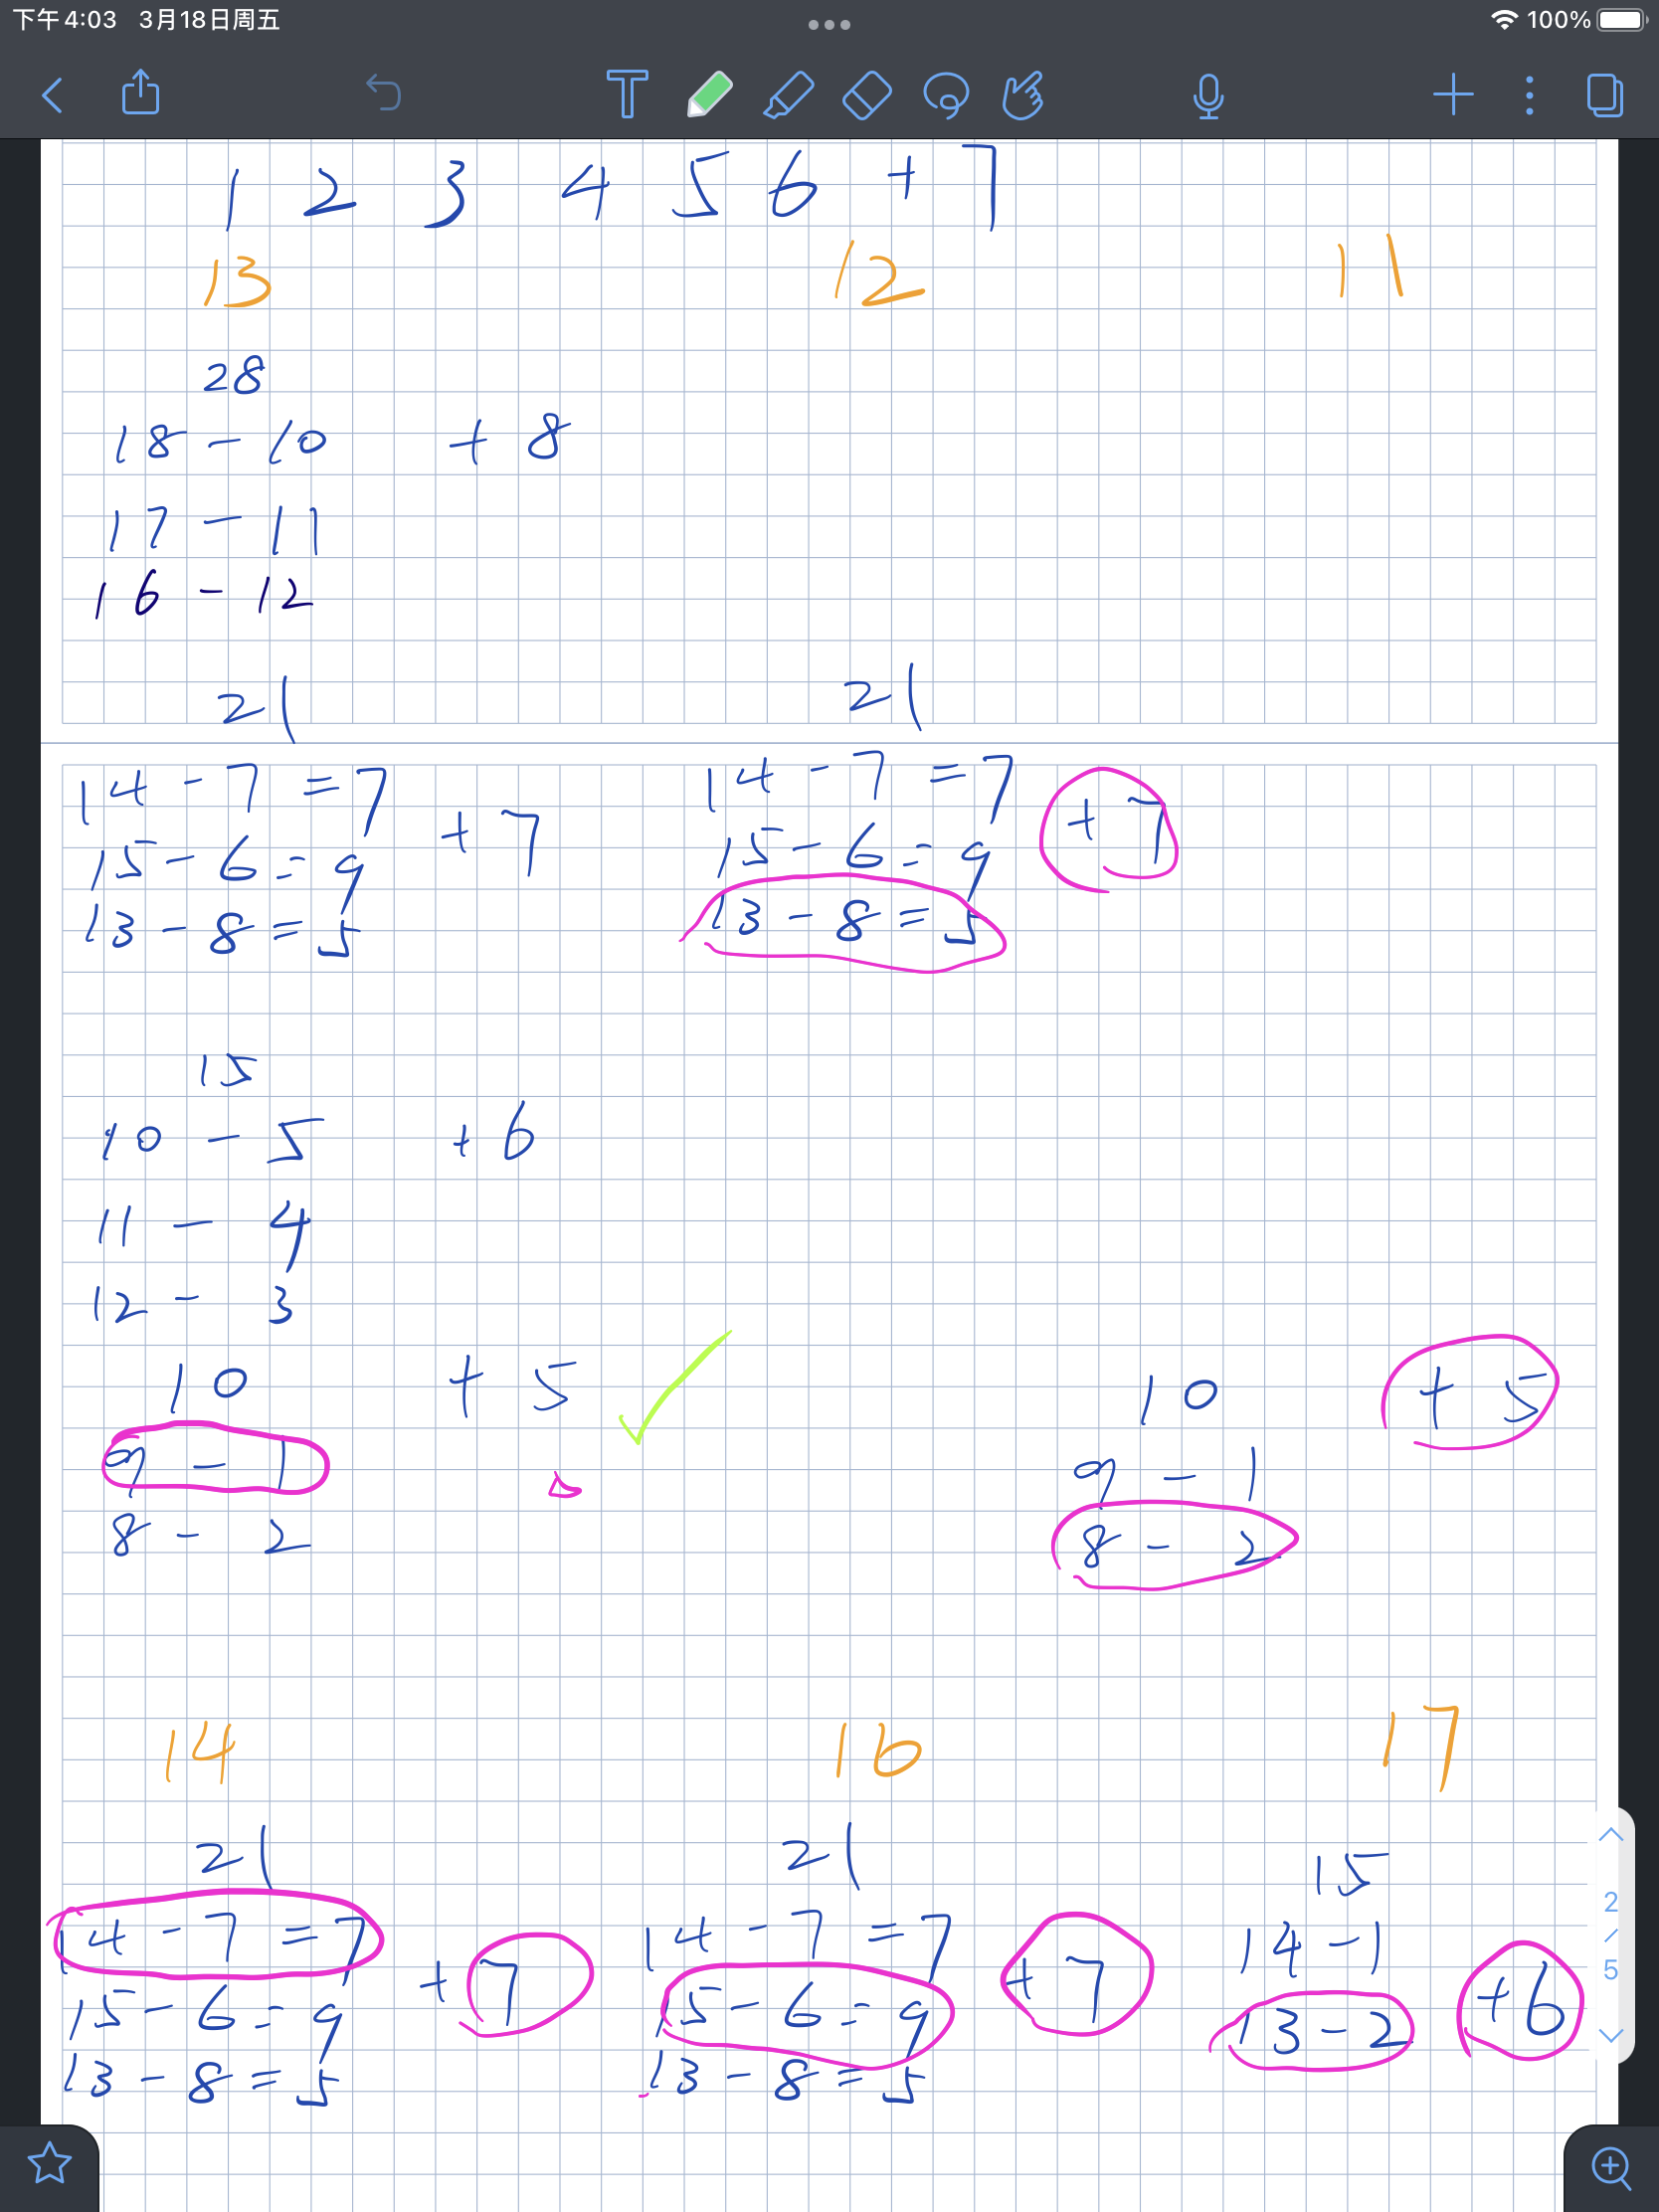 下午4:03 3月18日周五 100%
1 2 3 4 5 6 + 7
13 12 11
28
18 - 10 + 8
17 - 11
16 - 12
21 21
14 - 7 = 7 14 - 7 = 7
+ 7 + 7
15 - 6 = 9 15 - 6 = 9
13 - 8 = 5 13 - 8 = 5
15
10 - 5 + 6
11 - 4
12 - 3
10 + 5 10 + 5
9 - 1 9 - 1
8 - 2 8 - 2
14 16 17
21 21 15
14 - 7 = 7 14 - 7 = 7 14 - 1
+ 7 + 7 + 6
15 - 6 = 9 15 - 6 = 9 13 - 2
13 - 8 = 5 13 - 8 = 5
2/5